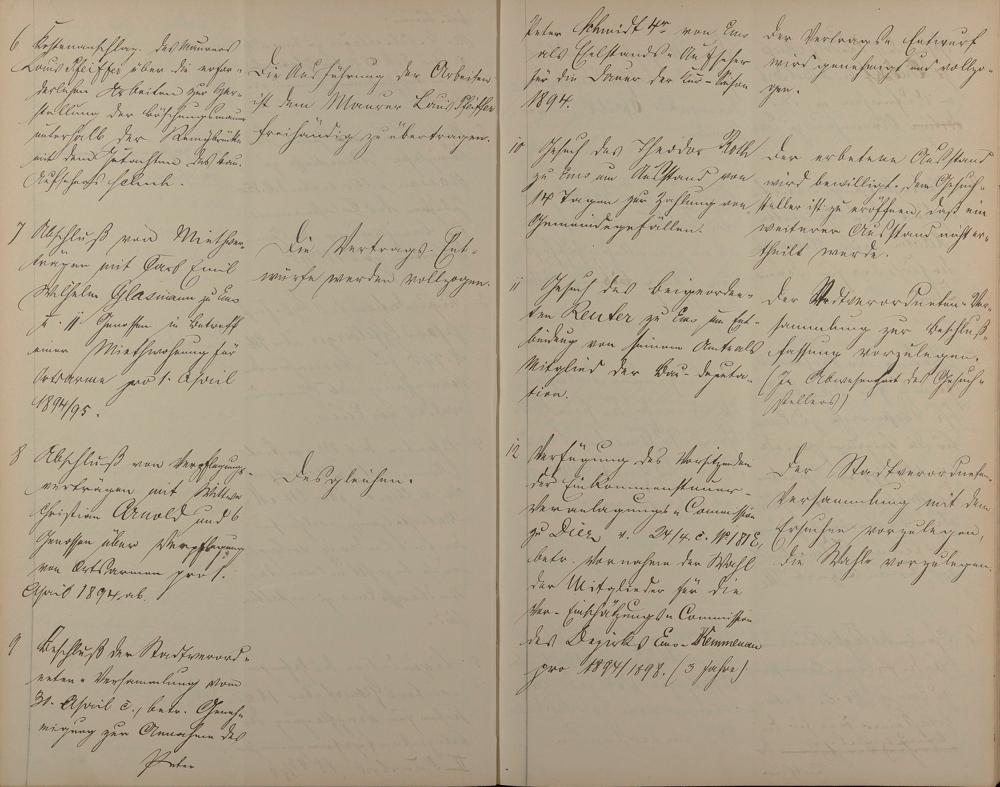 6 Kostenanschlag des Maurers
Louis Pfeiffer über die erfor-
derlichen Arbeiten zur Her-
stellung der Böschungsmauer
unterhalb der Remybrücke
mit dem Gutachten des Bau-
Aufsehers Schenk.
Die Ausführung der Arbeiten
ist dem Maurer Louis Pfeiffer
freihändig zu übertragen.
7 Abschluß von Miethver-
trägen mit Carl Emil
Wilhelm Glasmann zu Ems
u. 11 Genossen in Betreff
einer Miethwohnung für
Ortsarme pro 1. April
1894/95.
Die Vertrags-Ent-
würfe werden vollzogen.
8 Abschluß von Verpflegungs-
verträgen mit Wittwe
Christian Arnold und 6
Genossen über Verpflegung
von Ortsarmen pro 1.
April 1894 ab.
Desgleichen.
9 Beschluß der Stadtverord-
neten-Versammlung vom
30. April c., betr. Geneh-
migung zur Annahme des
Peter
Peter Schmidt 4r von Ems
als Eselstands-Aufseher
für die Dauer der Cur-Saison
1894.
Der Vertrags-Entwurf
wird genehmigt und vollzo-
gen.
10 Gesuch des Theodor Roth
zu Ems um Ausstand von
14 Tagen zur Zahlung von
Gemeindegefällen.
Der erbetene Ausstand
wird bewilligt. Dem Gesuch-
steller ist zu eröffnen, daß ein
weiterer Ausstand nicht er-
theilt werde.
11 Gesuch des Beigeordne-
ten Reuter zu Ems um Ent-
bindung von seinem Amt als
Mitglied der Bau-Deputa-
tion.
Der Stadtverordneten-Ver-
sammlung zur Beschluß-
fassung vorzulegen.
(In Abwesenheit des Gesuch-
stellers)
12 Verfügung des Vorsitzenden
der Einkommensteuer-
Veranlagungs-Commission
zu Diez v. 24/4. c. No 1878,
betr. Vornahme der Wahl
der Mitglieder für die
Vor-Einschätzungs-Commission
des Bezirks Ems-Kemmenau
pro 1894/1898. (3 Jahre)
Der Stadtverordneten-
Versammlung mit dem
Ersuchen vorzulegen,
die Wahl vorzulegen.